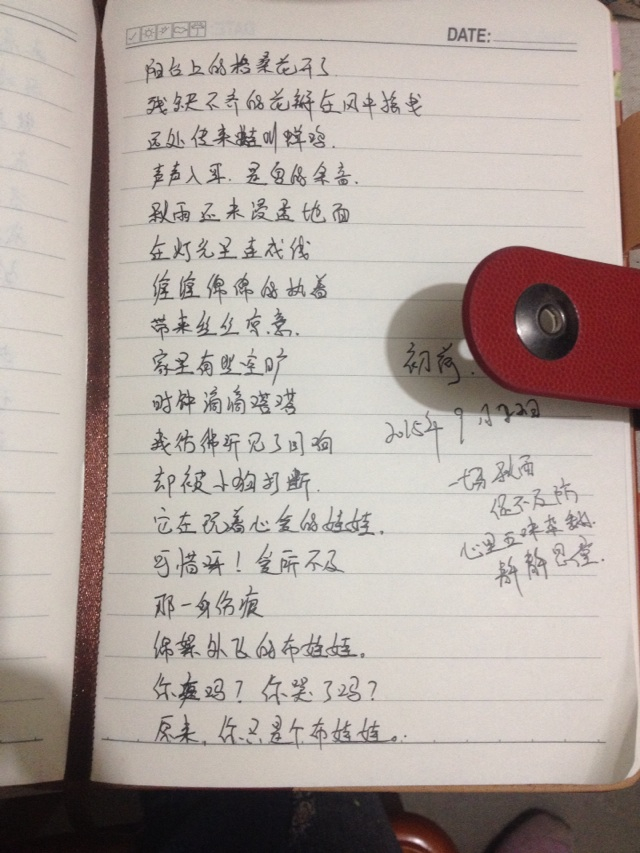 DATE:
阳台上的格桑花开了
残缺不齐的花瓣在风中摇曳
远处传来蛙叫蝉鸣.
声声入耳.是夏的余音.
秋雨还未浸透地面
在灯光里连成线
缠缠绵绵的执着
带来丝丝凉意.
家里有些空旷
时钟滴滴嗒嗒
我仿佛听见了回响
却被小狗打断.
它在玩着心爱的娃娃.
可惜呀！爱所不及
那一身伤痕
绵絮外飞的布娃娃。
你疼吗？你哭了吗？
原来，你只是个布娃娃。
初荷.
2015年9月22日
一场秋雨
促不及防
心里五味杂
静静思